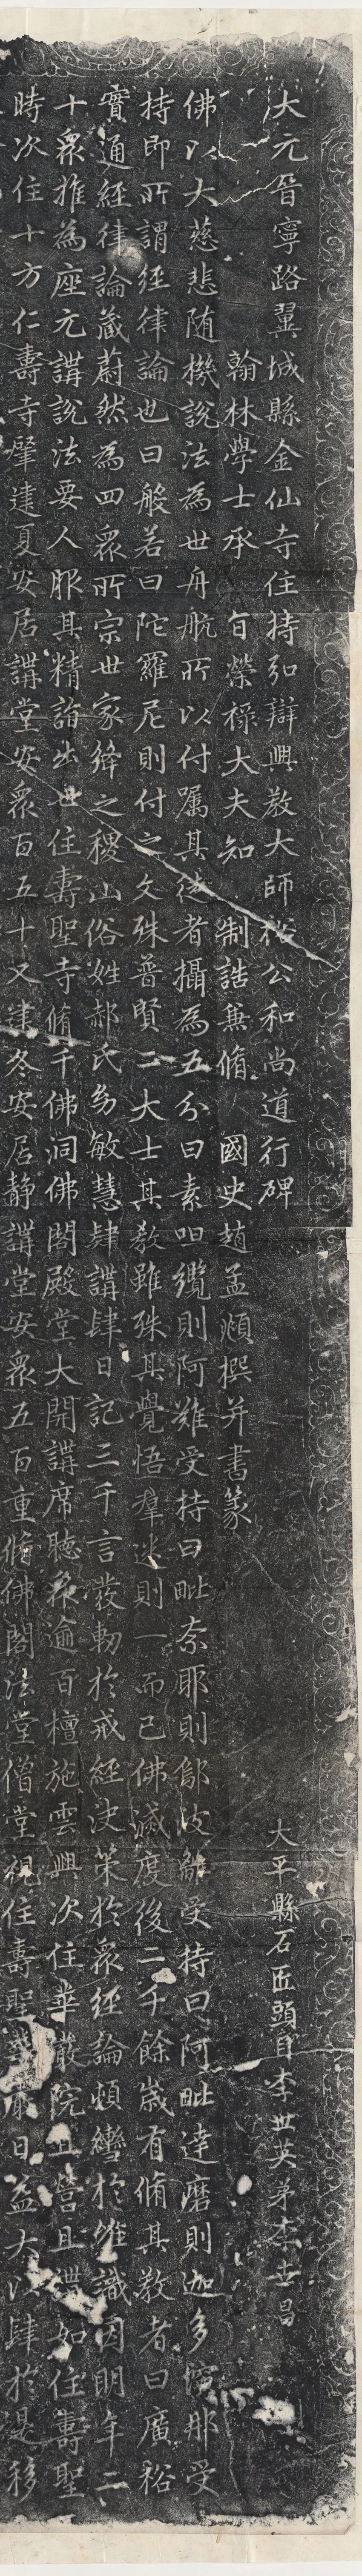 大元晉寧路翼城縣金仙寺住持弘辯興教大師裕公和尚道行碑
大平縣石匠頭目李世英弟李世昌
翰林學士承旨榮祿大夫知制誥兼脩國史趙孟頫撰并書篆
佛以大慈悲随機說法為世舟航所以付嘱其徒者攝為五分曰素呾纜則阿難受持曰毗奈耶則鄔波離受持曰阿毗達磨則迦多衍那受
持即所謂經律論也曰般若曰陀羅尼則付之文殊普賢二大士其教雖殊其覺悟羣迷則一而已佛滅度後二千餘歲有脩其教者曰廣裕
實通經律論藏蔚然為四眾所宗世家絳之稷山俗姓郝氏幼敏慧肆講肆日記三千言發軔於戒經決策於眾經論頓轡於惟識因明年二
十眾推為座元講說法要人服其精詣出世住壽聖寺脩千佛洞佛閣殿堂大開講席聽眾逾百檀施雲興次住華嚴院且營且講如住壽聖
時次住十方仁壽寺肇建夏安居講堂安眾百五十又建冬安居靜講堂安眾五百重脩佛閣法堂僧堂視住壽聖華嚴日益大以肆於是移